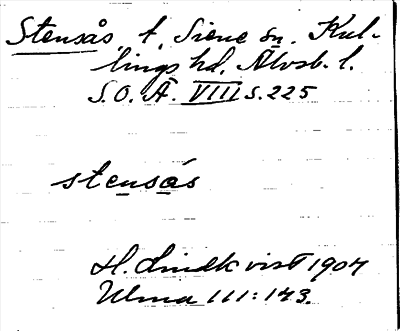 Stensås t. Siene sn. Kul-
lings hd. Älvsb. l.
S.O.Ä. VIII S.225
stensås
H. Lindkvist 1907
Ulma 111:143.